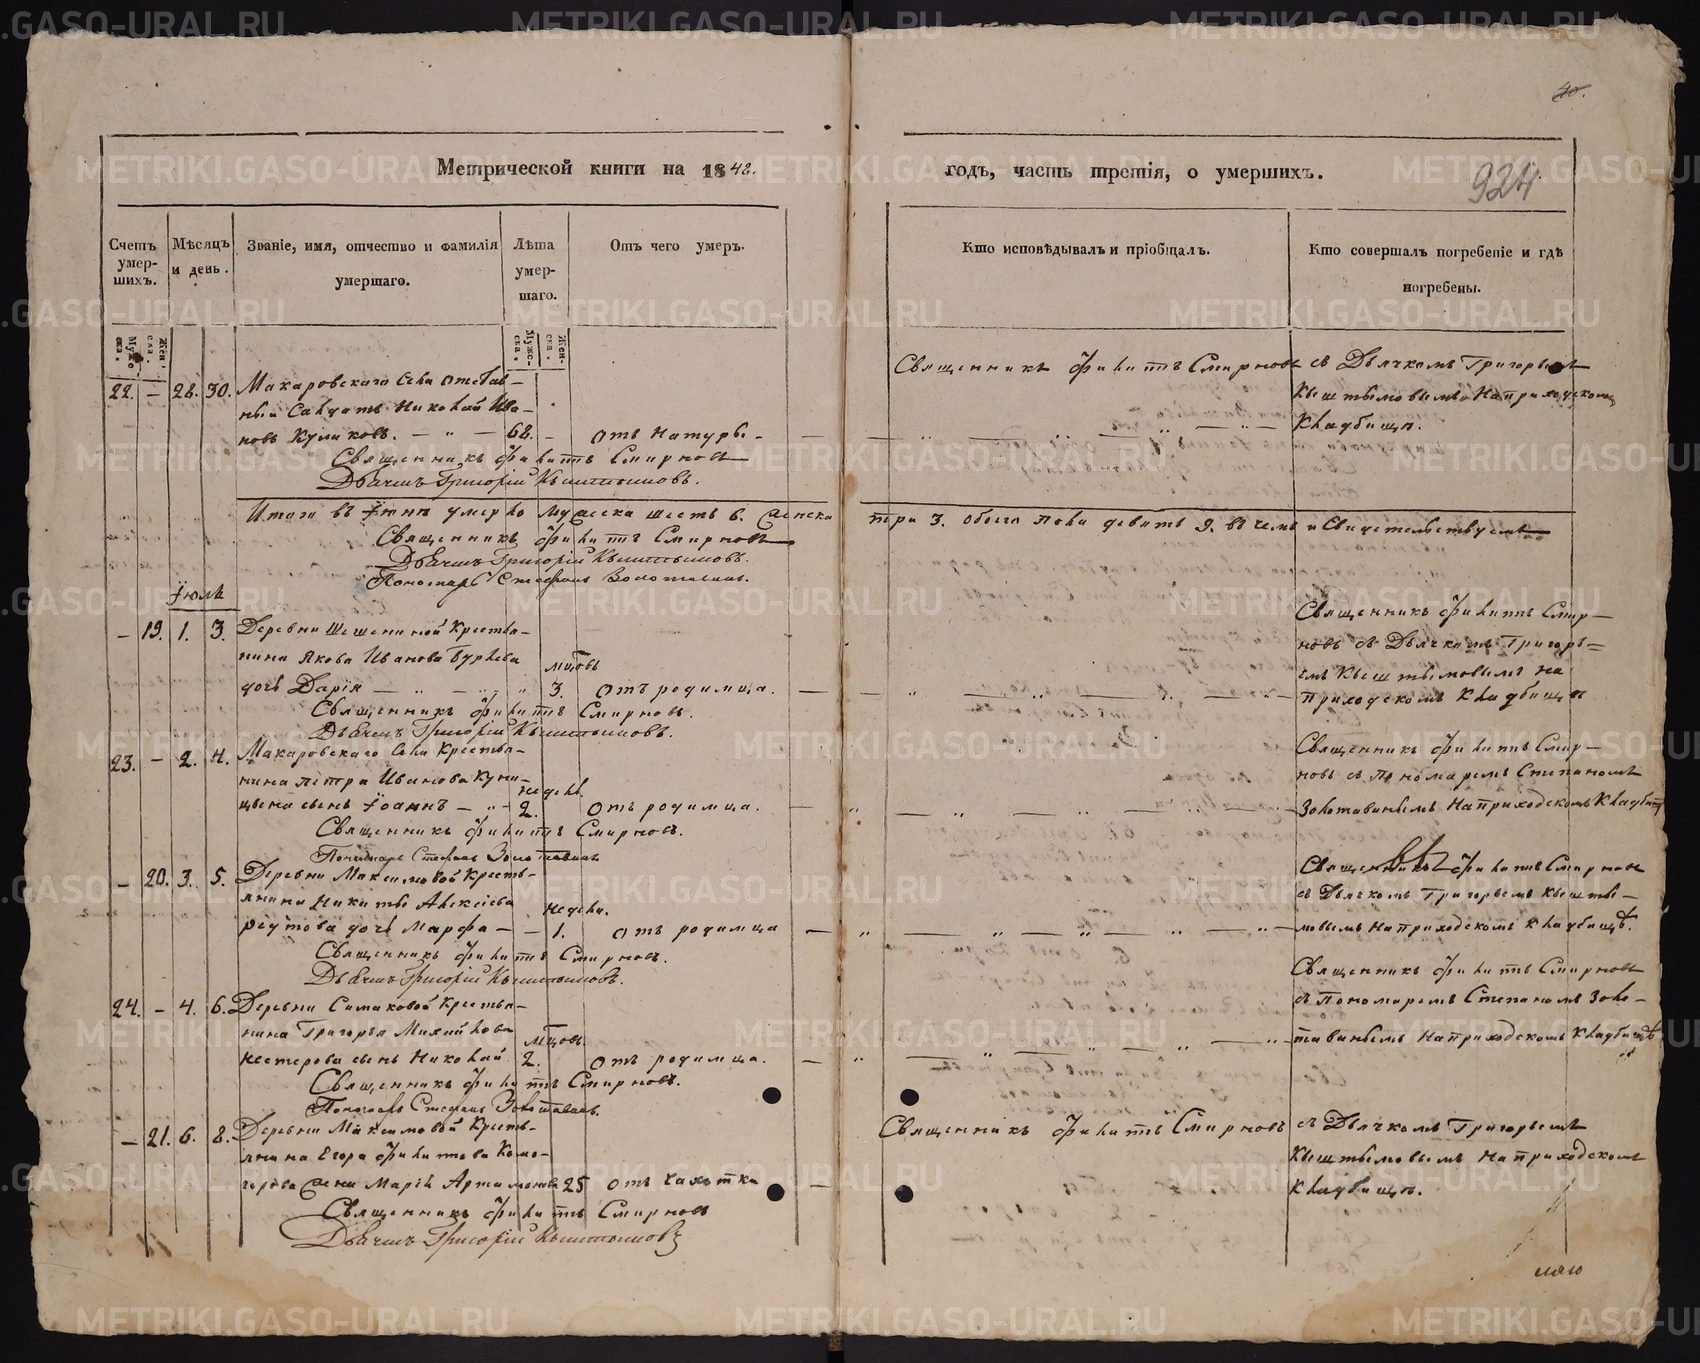 40.
Метрической книги на 1842.
годъ, часть третія, о умершихъ.
924
Счетъ умер-шихъ.
Мѣсяцъ и день.
Званіе, имя, отчество и фамилія умершаго.
Лѣта умер-шаго.
Отъ чего умеръ.
Кто исповѣдывалъ и пріобщалъ.
Кто совершалъ погребеніе и гдѣ погребены.
Муже-ска.
Жен-ска.
Муже-ска.
Жен-ска.
22. — 28. 30. Макаровскаго Села отстав-
ный Салдатъ Николай Ива-
новъ Куликовъ. — „ — 68. — отъ натуры —
Священникъ Филиппъ Смирновъ
съ Дьячкомъ Григорьемъ
Кыштымовымъ На приходскомъ
Кладбищѣ.
Священникъ Филиппъ Смирновъ
Дьячекъ Григорій Кыштымовъ.
Итого въ Іюнѣ умерло мужеска шесть 6. женска три 3. обоего пола девять 9. въ чемъ и свидетельствуемъ
Священникъ Филиппъ Смирновъ
Дьячекъ Григорій Кыштымовъ.
Пономарь Стефанъ Золотавинъ.
Іюль
— 19. 1. 3. Деревни Шешениной Крестья-
нина Якова Иванова Гурьева
дочь Дарія — „ — „ мцовъ 3. отъ родимца. —
Священникъ Филиппъ Смир-
новъ съ Дьячкомъ Григорь=
емъ Кыштымовымъ на
приходскомъ Кладбищѣ
Священникъ Филиппъ Смирновъ.
Дьячекъ Григорій Кыштымовъ.
23. — 2. 4. Макаровскаго Села Крестья-
нина Петра Иванова Куни-
цына сынъ Іоаннъ — „ — недѣл. 2. отъ родимца. —
Священникъ Филиппъ Смир-
новъ съ Пономаремъ Степаномъ
Золотавинымъ На приходскомъ Кладбищѣ
Священникъ Филиппъ Смирновъ.
Пономарь Стефанъ Золотавинъ
— 20. 3. 5. Деревни Максимовой Кресть-
янина Никиты Алексіева
Реутова дочь Марфа — — недели. 1. отъ родимца —
Священникъ Филиппъ Смирновъ
съ Дьячкомъ Григорьемъ Кышты-
мовымъ На приходскомъ кладбищѣ.
Священникъ Филиппъ Смирновъ.
Дьячекъ Григорій Кыштымовъ.
24. — 4. 6. Деревни Симаковой Крестья-
нина Григорья Михайлова
Нестерова сынъ Николай мцовъ 2. отъ родимца. —
Священникъ Филиппъ Смирновъ
съ Пономаремъ Степаномъ Золо-
тавинымъ На приходскомъ Кладбищѣ
Священникъ Филиппъ Смирновъ.
Пономарь Стефанъ Золотавинъ.
— 21. 6. 8. Деревни Максимовой Кресть-
янина Егора Филиппова Комо-
горова жена Марія Артамонова 25 отъ чахотки —
Священникъ Филиппъ Смирновъ
съ Дьячкомъ Григорьемъ
Кыштымовымъ На приходскомъ
Кладбищѣ.
Священникъ Филиппъ Смирновъ
Дьячекъ Григорій Кыштымовъ
METRIKI.GASO-URAL.RU